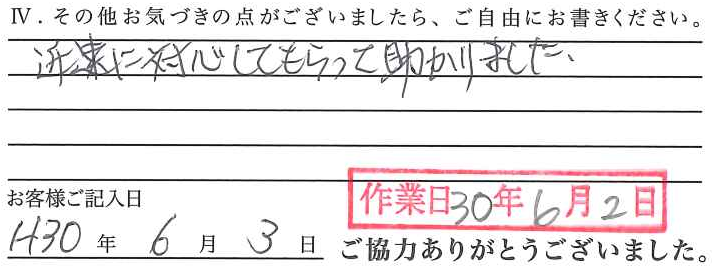 Ⅳ．その他お気づきの点がございましたら、ご自由にお書きください。
迅速に対応してもらって助かりました。
お客様ご記入日
作業日30年6月2日
H30年6月3日
ご協力ありがとうございました。